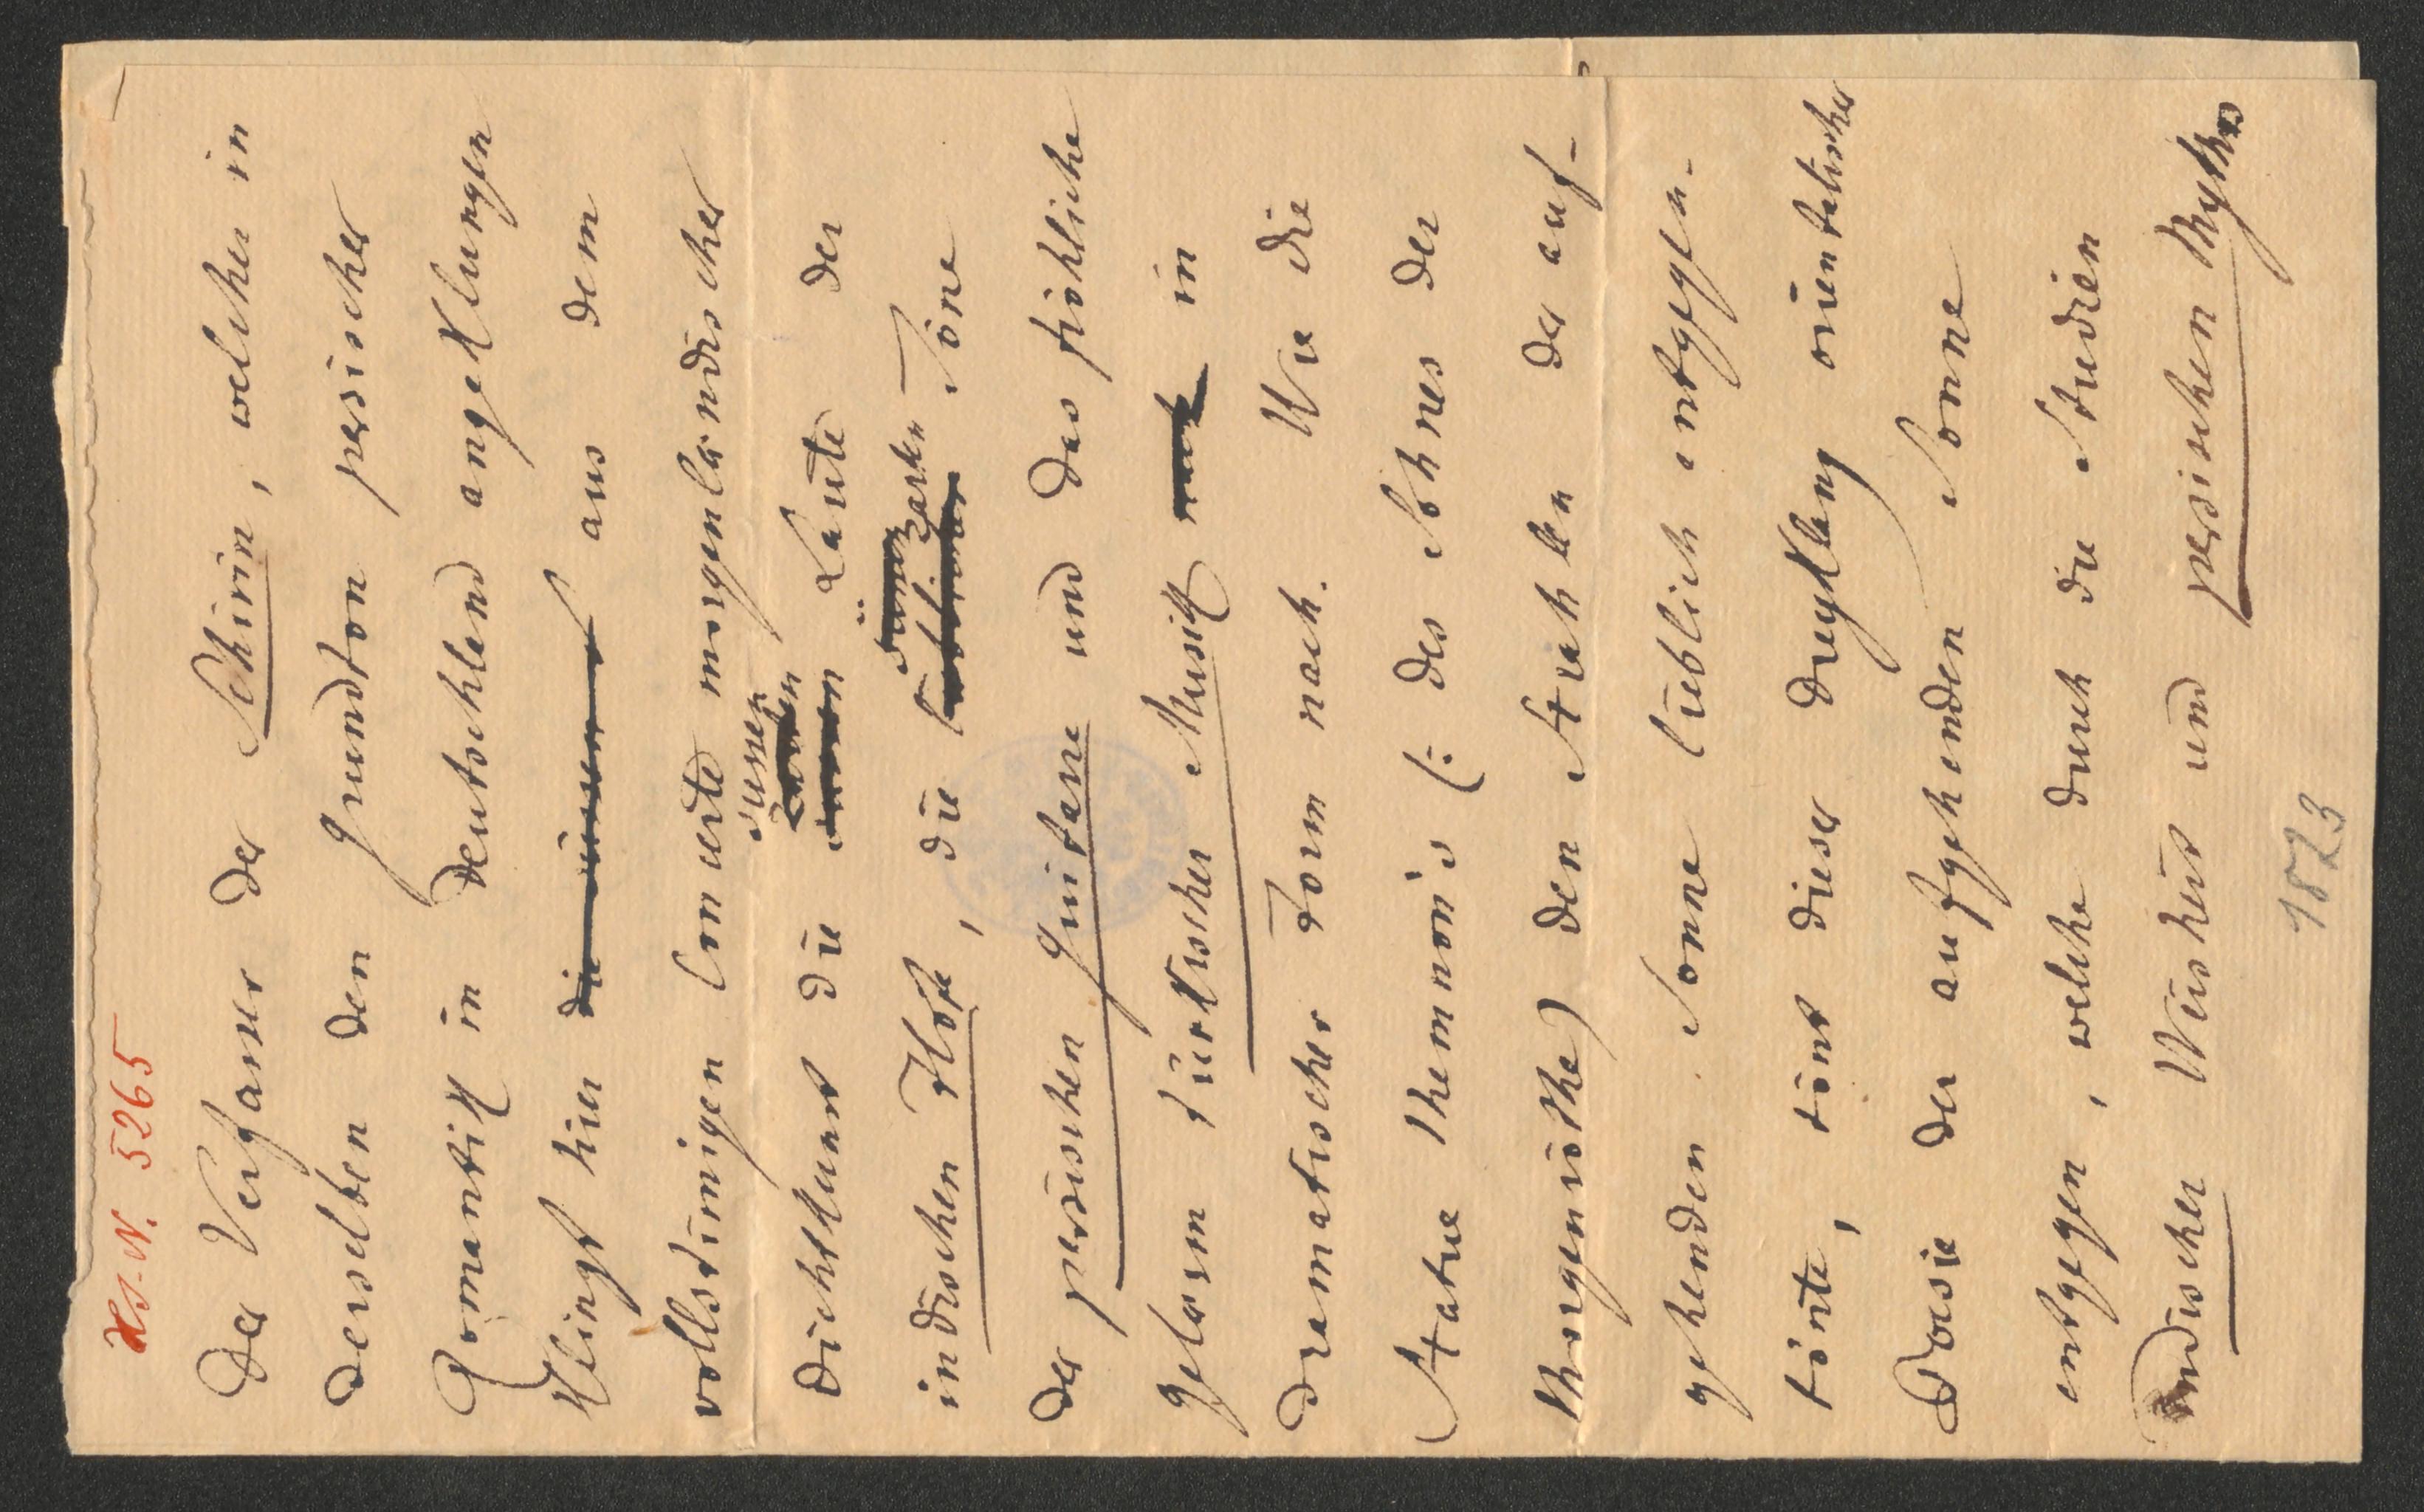 Hs.-N. 5265
Der Verfasser der Schirin, welcher in
derselben den Grundton persischer
Romantik in Deutschland angeklungen
klingt hier aus dem
vollstimigen Concerte morgenländischer
süssen
Dichtkunst die Laute der
zarten
indischen Flöte, die Töne
der persischen Guitarre und das fröhliche
Gelärm türkischer Musik in
dramatischer Form nach. Wie die
Statue Memnon's (: des Sohnes der
Morgenröthe) den Strahlen der auf-
gehenden Sonne lieblich entgegen-
tönte, tönt dieser Dreyklang orientalischer
Poesie der aufgehenden Sonne
entgegen, welche durch die Studien
indischer Weisheit und persischen Mythos
1823